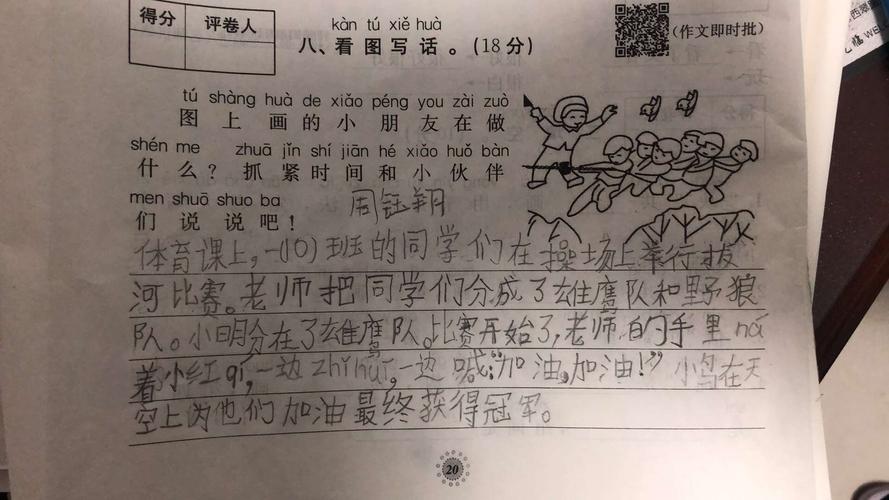 得分 评卷人
kàn tú xiě huà
八、看图写话。(18分)
(作文即时批)
tú shàng huà de xiǎo péng you zài zuò
图上画的小朋友在做
shén me zhuā jǐn shí jiān hé xiǎo huǒ bàn
什么？抓紧时间和小伙伴
men shuō shuo ba
们说说吧！
周钰翔
体育课上,一(10)班的同学们在操场上举行拔
河比赛。老师把同学们分成了雄鹰队和野狼
队。小明分在了雄鹰队。比赛开始了,老师的手里ná
着小红qí,一边zhǐhuī,一边喊:"加油,加油!"小鸟在天
空上为他们加油最终获得冠军。
20